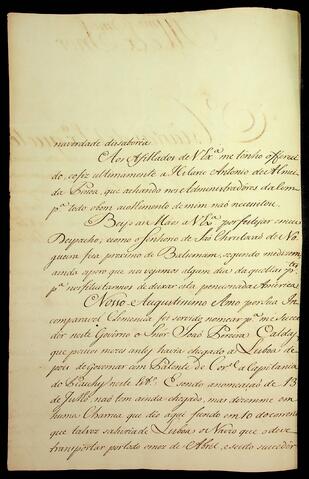 na verdade da sabória
Aos Afillados de V Exª me tenho offereci
do, e o fiz ultimamente a Antonio de Almei
da que achando nos Administradores da Com
pª todo bom acolhimento de mim não necesitou
Beijo as Maos a V Exª por festejar o meu
Despacho, e como o Senhorio de São Christovão de No
gueira fica proximo de segundo me dizem
ainda espero que nos vejamos algum dia
pª nos felicitarmos de deixar esta America
Nosso Augustissimo Amo por Sua In
comparavel Clemencia foi servido nomear pª me suceder
neste Governo o Snor João Pereira Caldas,
que poucos mezes antes havia chegado a Lisboa de
pois de Governar com Patente de Corel a Capitania
do Piauhy neste E sendo a nomeação de 13
de Julho não tem ainda chegado, mas dezemme em
huma Charrua que dis aqui fundeo em 10 do corrente
que talvez sahiria de Lisboa o Navio que o deve
transportar por todo o mez de Abril, e este sucessor